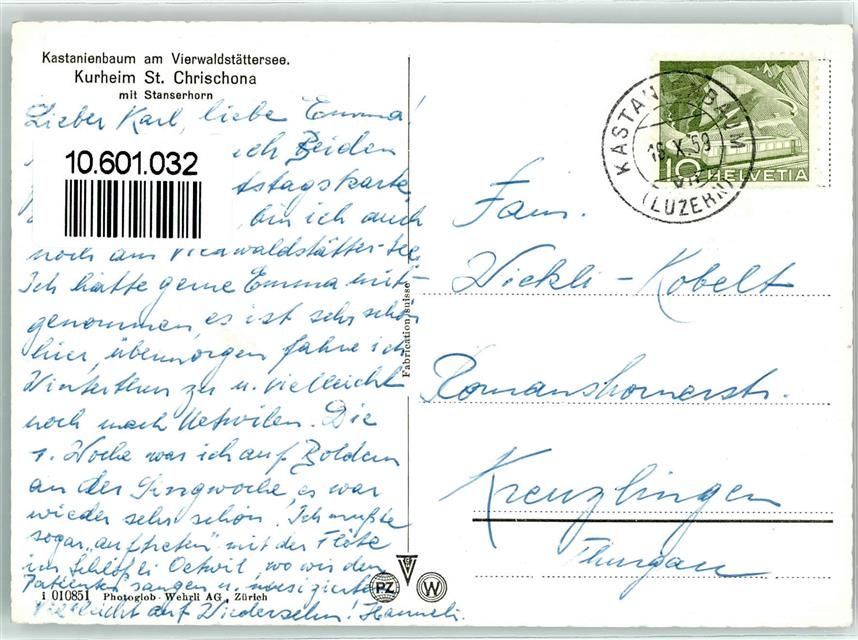 Kastanienbaum am Vierwaldstättersee.
Kurheim St. Chrischona
mit Stanserhorn
Lieber Karl, liebe Emma!
ich Beiden
10.601.032
tstagskarte,
bin ich auch
noch am Vierwaldstätter-See
Ich hätte gerne Emma mit-
genommen, es ist sehr schön
hier, übermorgen fahre ich
Winterthur zu u. vielleicht
noch nach Uetwilen. Die
1. Woche war ich auf Boldern
an der Singwoche, es war
wieder sehr schön. Ich mußte
sogar "auftreten" mit der Flöte
im Schlößli Oetwil, wo wir den
Patienten sangen u. musizierten
Vielleicht auf Wiedersehn! Hanneli.
i 010851 Photoglob-Wehrli AG., Zürich
Fabrication suisse
PZ
W
KASTANIENBAUM
16.X.59
(LUZERN)
10 HELVETIA
Fam.
Wickli-Kobelt
Romanshornerstr.
Kreuzlingen
Thurgau